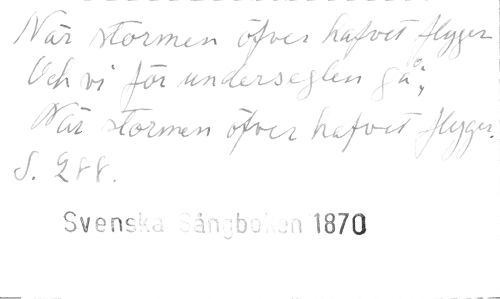 När stormen öfver hafvet flyger
Och vi för underseglen gå,
När stormen öfver hafvet flyger.
S. 288.
Svenska Sångboken 1870